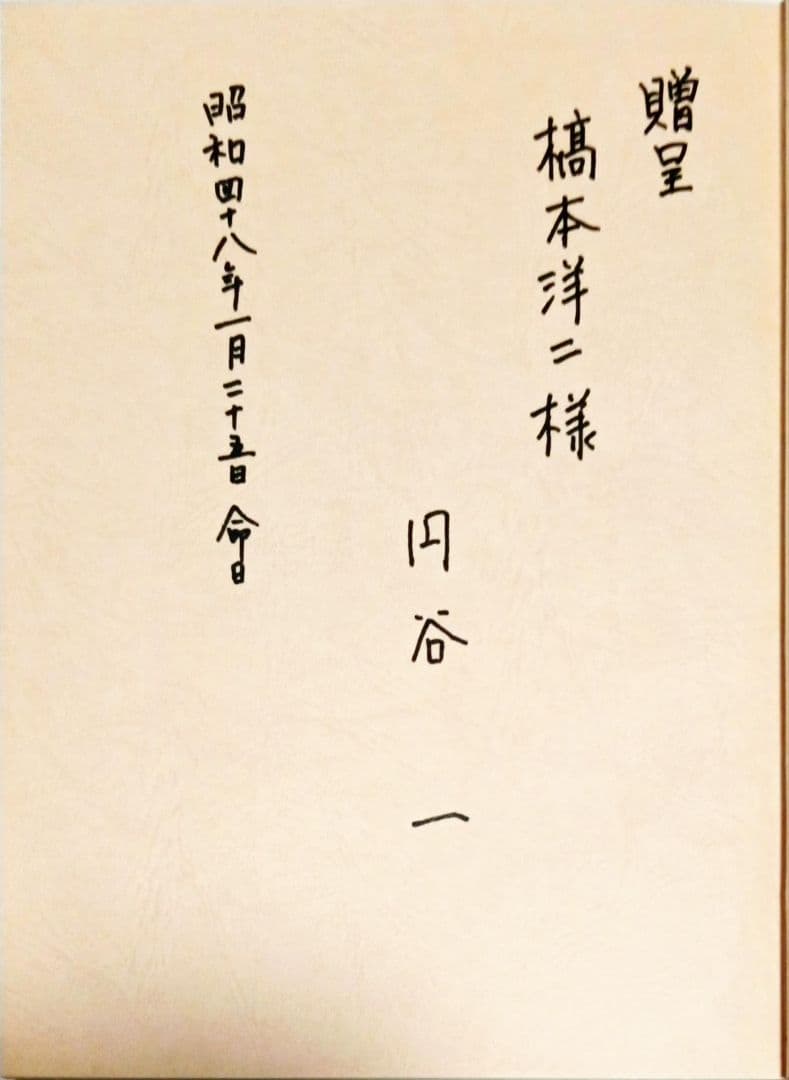 贈呈
橋本洋二様
円谷 一
昭和四十八年一月二十五日 命日